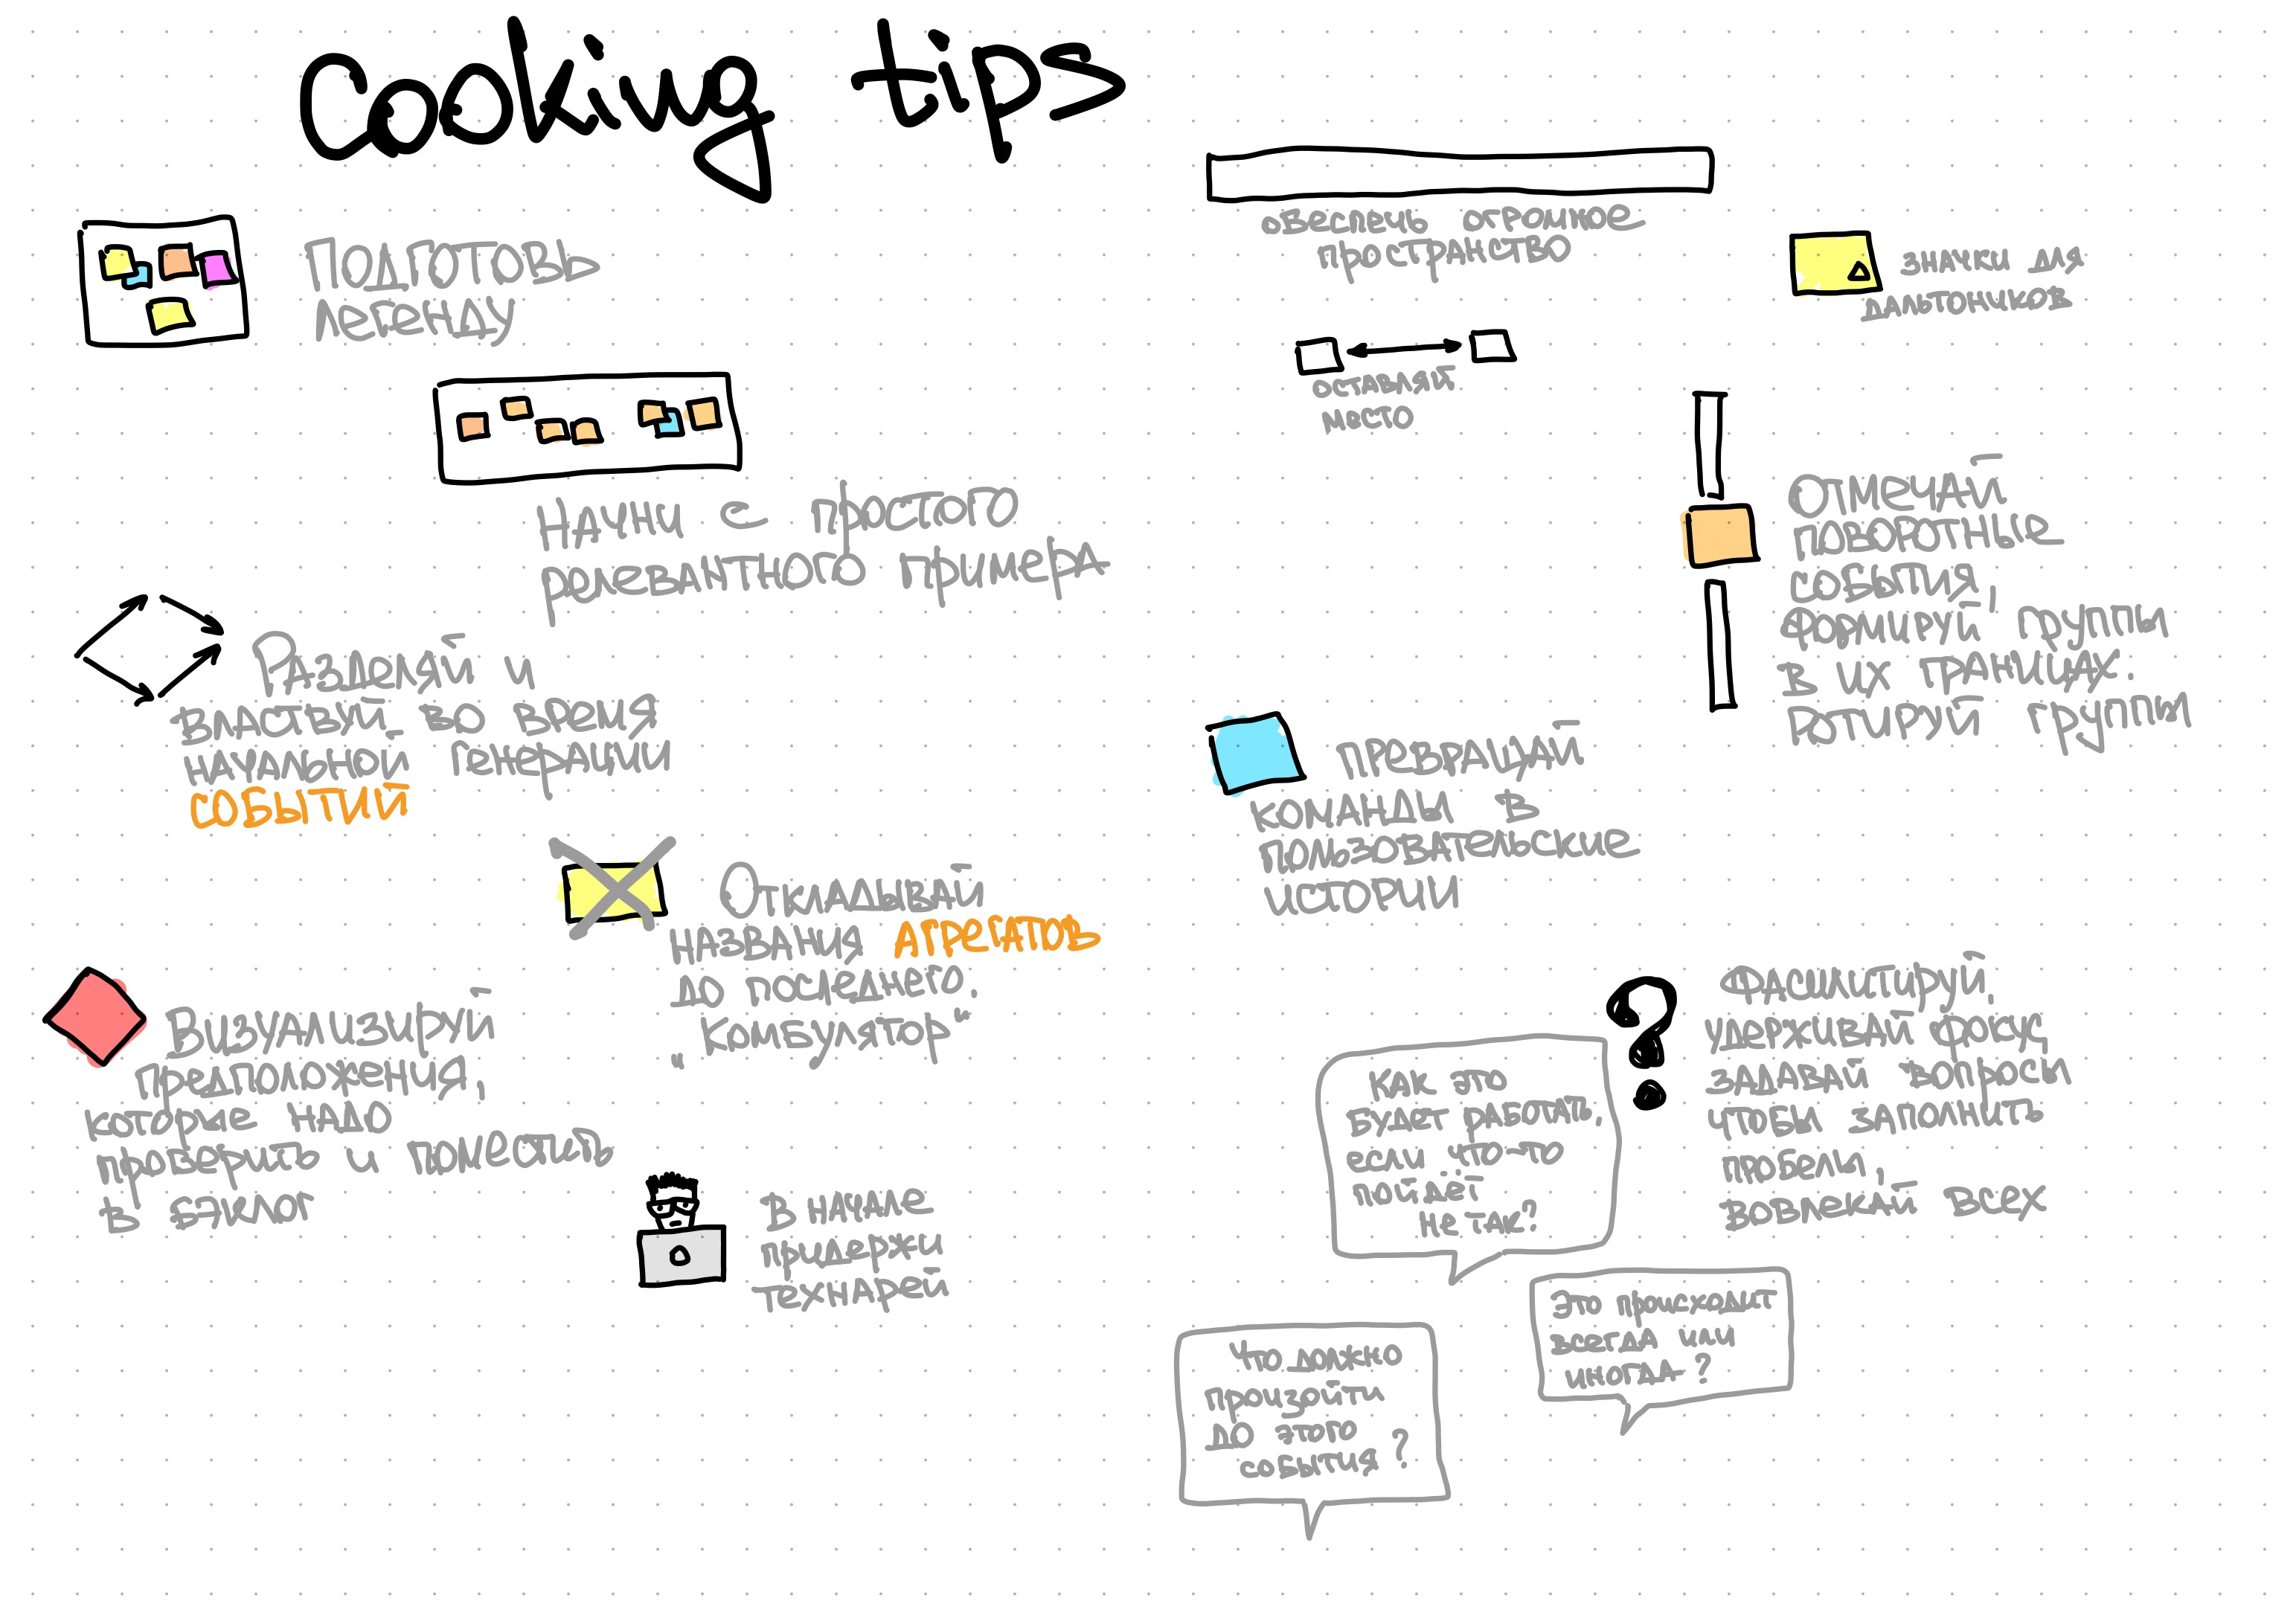 Cooking tips
Подготовь
легенду
Начни с простого
релевантного примера
Разделяй и
властвуй во время
начальной генерации
событий
Откладывай
названия агрегатов
до последнего.
„Комбулятор“
Визуализируй
предположения,
которые надо
проверить и поместить
в бэклог
В начале
придержи
технарей
обеспечь огромное
пространство
значки для
дальтоников
оставляй
место
Отмечай
поворотные
события,
формируй группы
в их границах.
Ротируй группы
превращай
команды в
пользовательские
истории
Фасилитируй,
удерживай фокус,
задавай вопросы
чтобы заполнить
пробелы,
вовлекай всех
Как это
будет работать,
если что-то
пойдёт
не так?
Это происходит
всегда или
иногда?
Что должно
произойти
до этого
события?